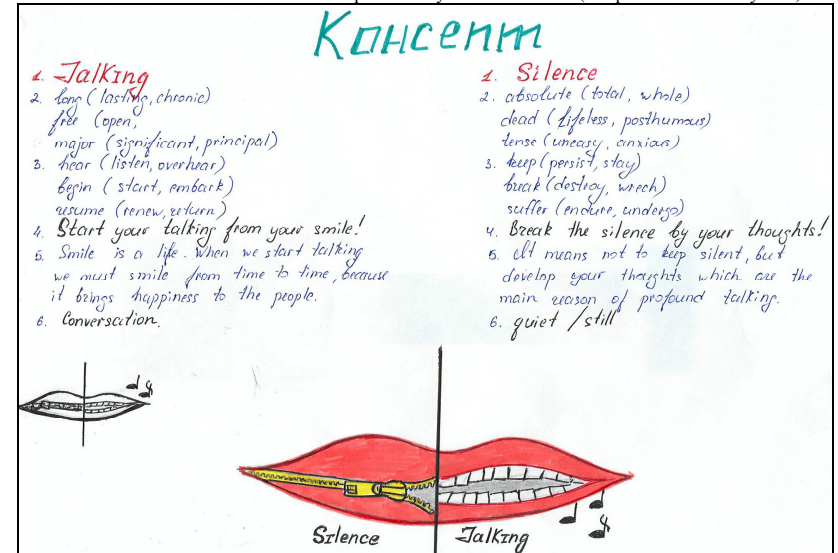 Консепт
1. Talking
2. long (lasting, chronic)
free (open,
major (significant, principal)
3. hear (listen, overhear)
begin (start, embark)
resume (renew, return)
4. Start your talking from your smile!
5. Smile is a life. When we start talking
we must smile from time to time, because
it brings happiness to the people.
6. Conversation.
1. Silence
2. absolute (total, whole)
dead (lifeless, posthumous)
tense (uneasy, anxious)
3. keep (persist, stay)
break (destroy, wrech)
suffer (endure, undergo)
4. Break the silence by your thoughts!
5. It means not to keep silent, but
develop your thoughts which are the
main reason of profound talking.
6. quiet / still
Silence
Talking